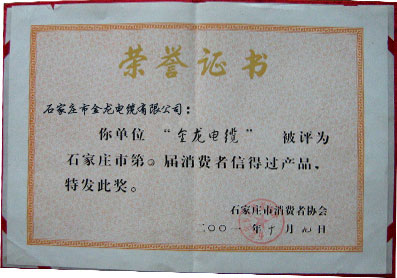 荣誉证书
石家庄市金龙电缆有限公司：
你单位“金龙电缆”被评为
石家庄市第 届消费者信得过产品，
特发此奖。
石家庄市消费者协会
二〇〇一年十月九日